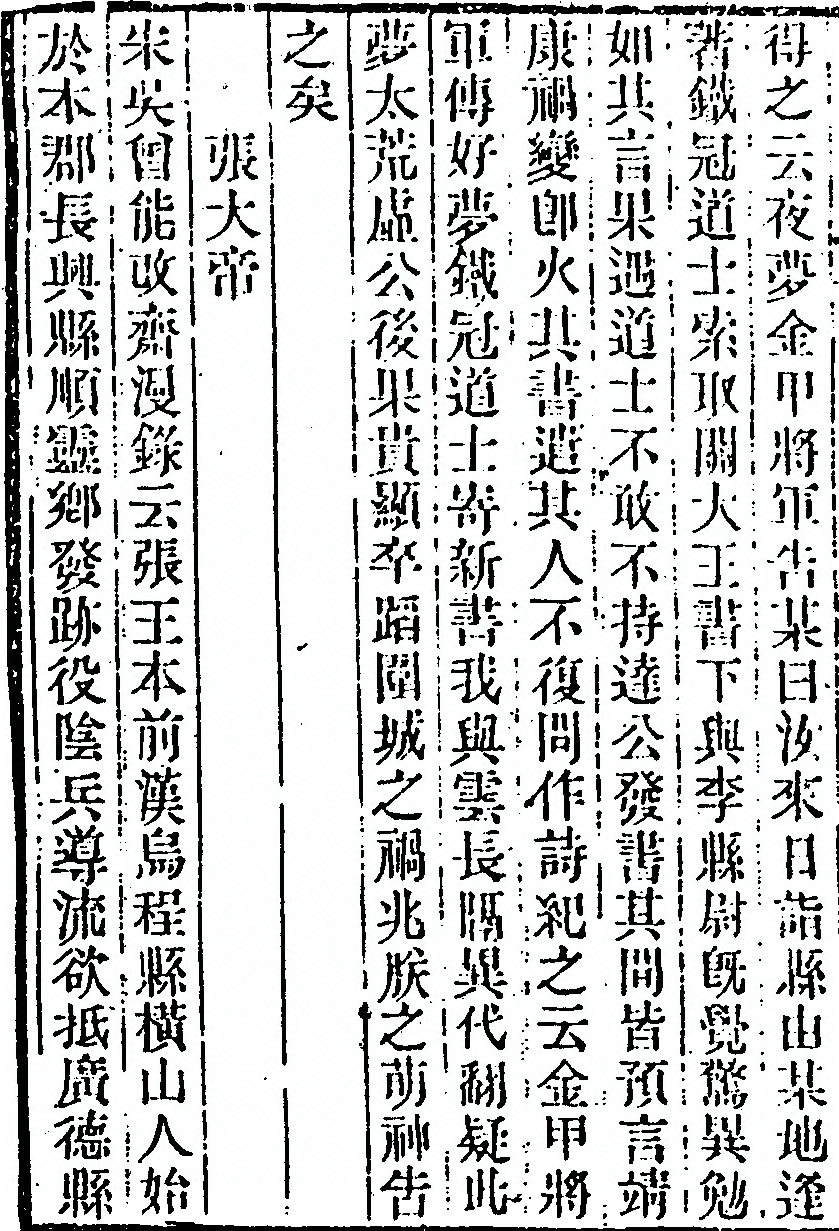 得之云夜夢金甲將軍告某曰汝來日詣縣由某地逢
著鐵冠道士索取關大王書下與李縣尉旣覺驚異勉
如其言果遇道士不敢不持達公發書其間皆預言靖
康禍變卽火其書遣其人不復問作詩紀之云金甲將
軍傳好夢鐵冠道士寄新書我與雲長隔異代翻疑此
夢太荒虛公後果貴顯卒蹈圍城之禍兆朕之萌神告
之矣
張大帝
朱吳曾能改齋漫錄云張王本前漢烏程縣橫山人始
於本郡長興縣順靈鄉發跡役陰兵導流欲抵廣德縣